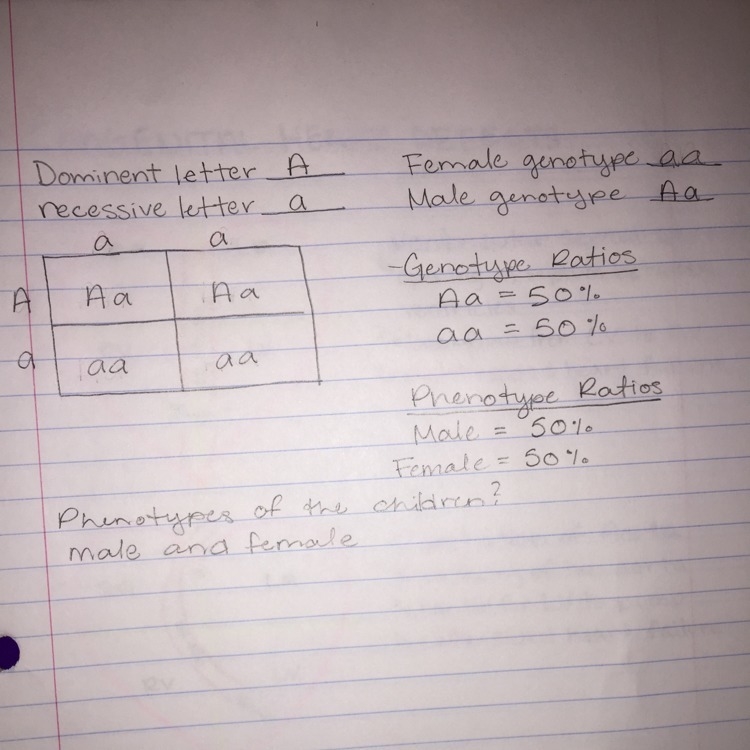 Dominent letter A
recessive letter a
Female genotype aa
Male genotype Aa
a a
A Aa Aa
a aa aa
-Genotype Ratios
Aa = 50%
aa = 50%
Phenotype Ratios
Male = 50%
Female = 50%
Phenotypes of the children?
male and female